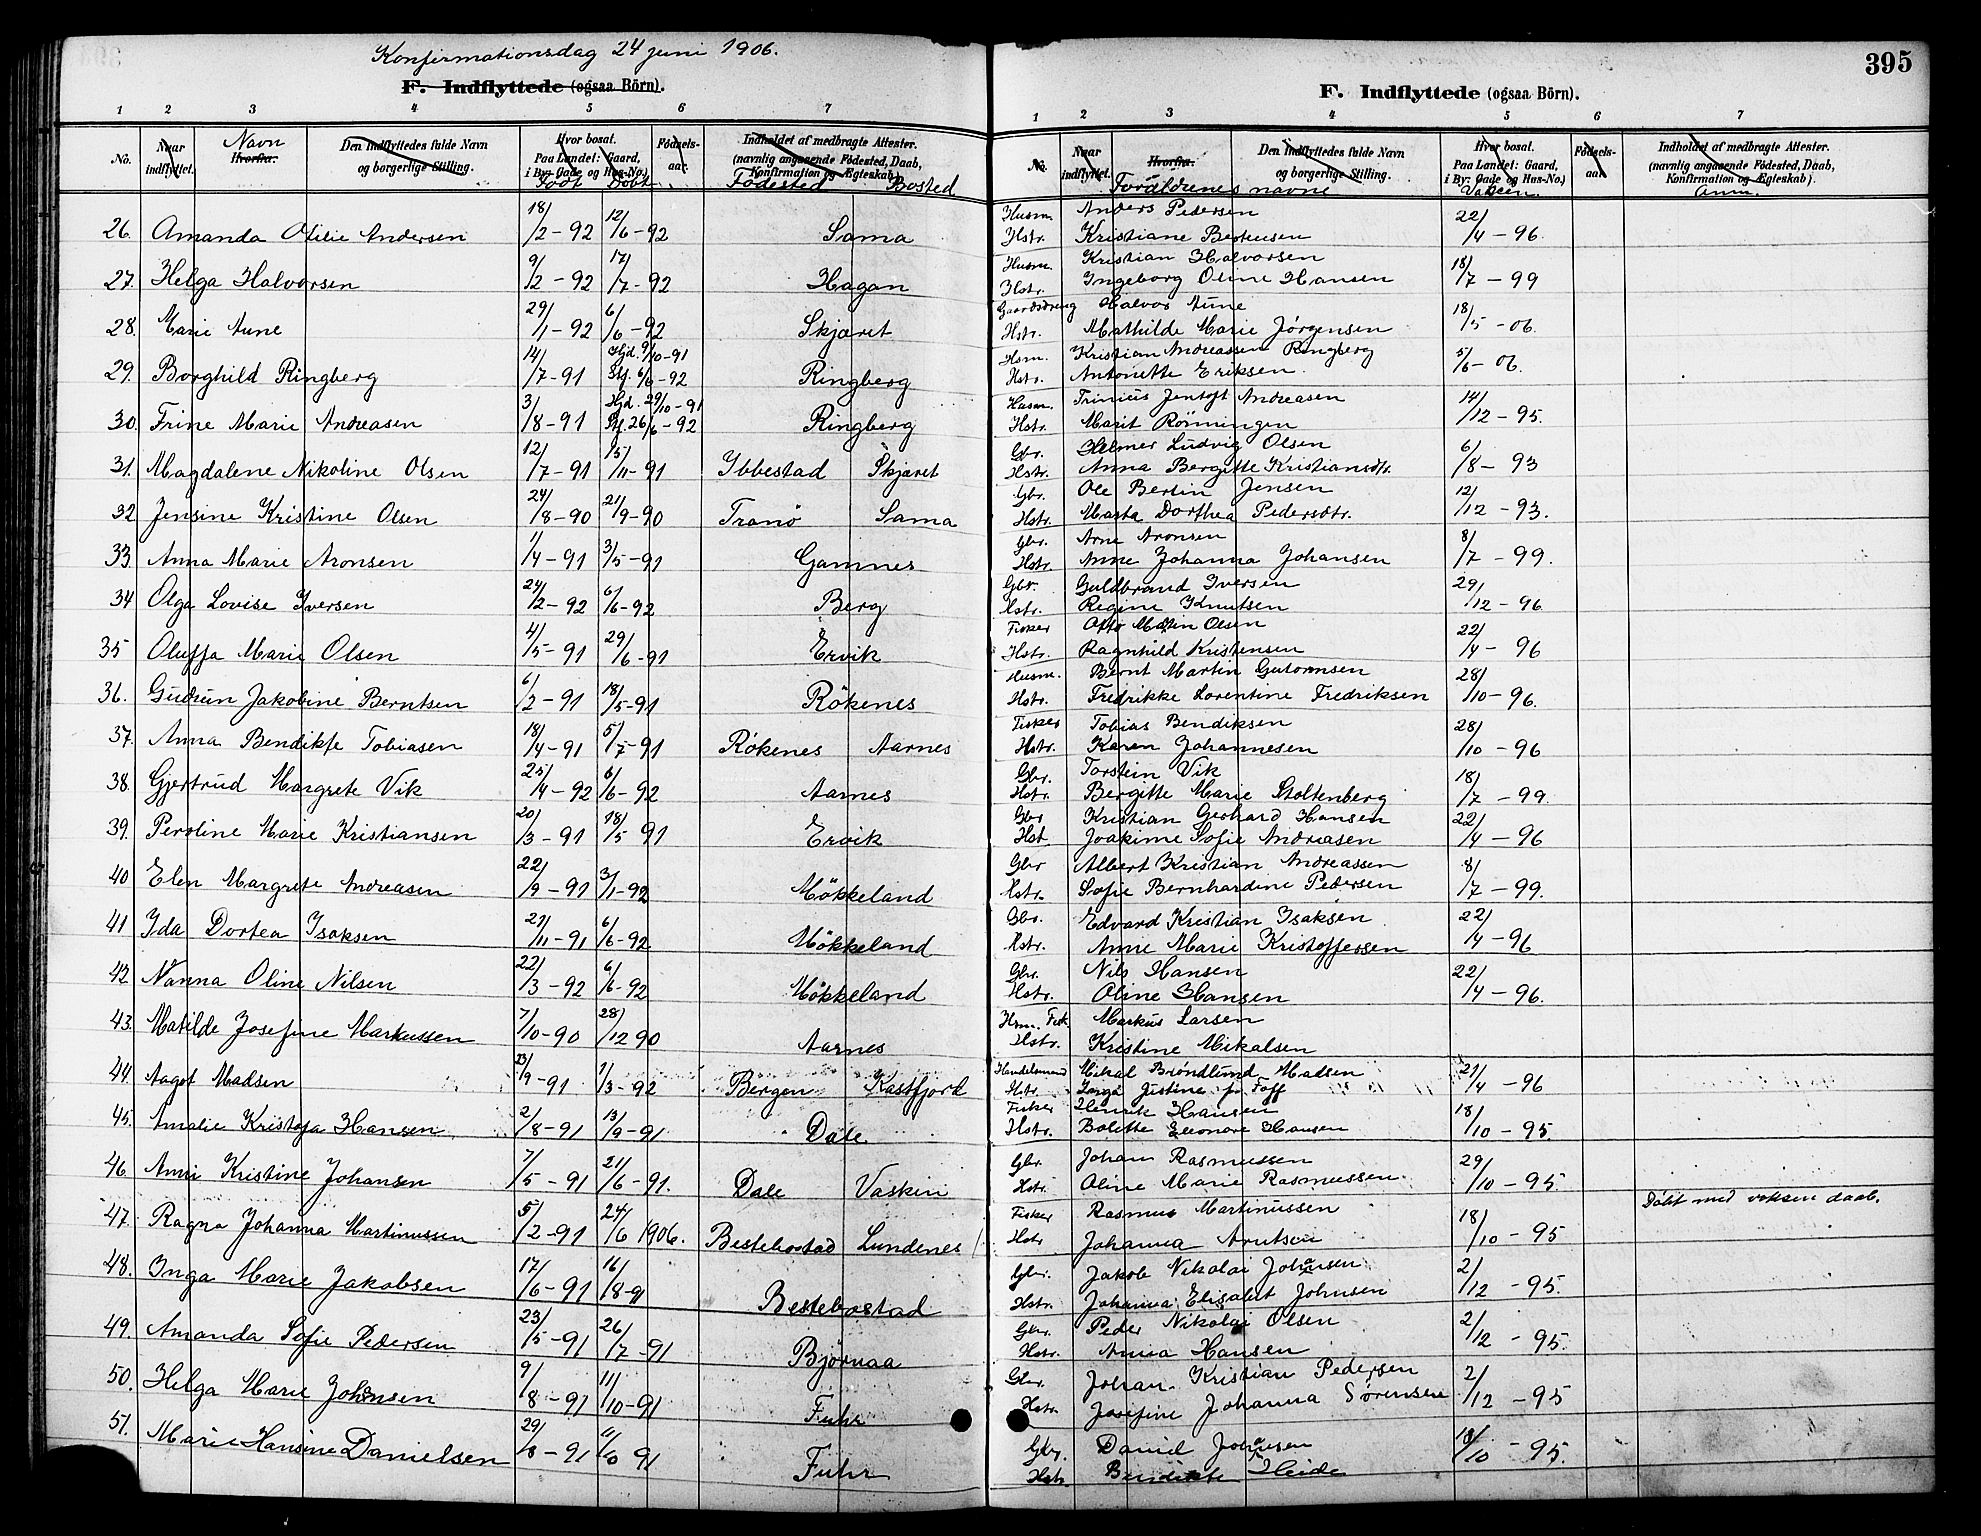 Konfirmationsdag 24 juni 1906.
395
F. Indflyttede (ogsaa Börn).
1 2 3 4 5 6 7
No. Naar indflyttet. Navn Hvorfra. Den Indflyttedes fulde Navn og borgerlige Stilling. Hvor bosat. Paa Landet: Gaard, i By: Gade og Hus-No.) Födt Döbt Födsels-aar. Indholdet af medbragte Attester. (navnlig angaaende Födested, Daab, Konfirmation og Ægteskab). Födested Bosted
26. Amanda Otilie Andersen 18/2-92 12/6-92 Sama
27. Helga Halvorsen 9/2-92 17/7-92 Hagan
28. Marie Aune 29/1-92 6/6-92 Skjæret
29. Borghild Ringberg 14/7-91 Hjd. 9/10-91 Stf. 6/6-92 Ringberg
30. Trine Marie Andreasen 3/8-91 Hjd. 29/10-91 Stf. 26/6-92 Ringberg
31. Magdalene Nikoline Olsen 12/7-91 15/11-91 Ibbestad Skjæret
32 Jensine Kristine Olsen 24/8-90 21/9-90 Tranö Sama
33 Anna Marie Aronsen 1/4-91 3/5-91 Gamnes
34 Olga Lovise Iversen 24/2-92 6/6-92 Berg
35 Oluffa Marie Olsen 4/5-91 29/6-91 Ervik
36. Gudrun Jakobine Berntsen 6/2-91 18/5-91 Rökenes
37. Anna Bendikte Tobiasen 18/4-91 5/7-91 Rökenes Aarnes
38. Gjertrud Margrete Vik 25/4-92 6/6-92 Aarnes
39. Peroline Marie Kristiansen 20/3-91 18/5 91 Ervik
40 Elen Margrete Andreasen 22/9-91 3/1-92 Mökkeland
41 Ida Dortea Isaksen 27/11-91 6/6-92 Mökkeland
42 Nanna Oline Nilsen 22/3-92 6/6-92 Mökkeland
43. Matilde Josefine Markussen 7/10-90 28/12 90 Aarnes
44. Aagot Madsen 23/9-91 1/3-92 Bergen Kasfjord
45. Amalie Kristofa Hansen 2/8-91 13/9-91 Dale
46. Anni Kristine Johansen 7/5-91 21/6-91. Dale Vaskin
47. Ragna Johanna Martinussen 5/2-91 24/6 1906. Bestebostad Lundenes
48. Inga Marie Jakobsen 17/6-91 16/8-91 Bestebostad
49. Amanda Sofie Pedersen 23/5-91 26/7-91 Björnaa
50. Helga Marie Johansen 9/8-91 11/10-91 Fuhr
51. Marie Hansine Danielsen 29/8-91 91 Fuhr
F. Indflyttede (ogsaa Börn).
1 2 3 4 5 6 7
No. Naar indflyttet. Hvorfra. Den Indflyttedes fulde Navn og borgerlige Stilling. Foræildrenes navne Hvor bosat. Paa Landet: Gaard, i By: Gade og Hus-No.) Vaccin. Födsels-aar. Indholdet af medbragte Attester. (navnlig angaaende Födested, Daab, Konfirmation og Ægteskab). Anm.
Husm. Anders Pedersen 22/4-96.
Hstr. Kristiane Bertensen
Husm. Kristian Halvorsen 18/7-99
Hstr. Ingeborg Oline Hansen
Gaardsdreng Halvor Aune 18/5-06.
Hstr. Mathilde Marie Jörgensen
Hsm. Kristian Andreassen Ringberg 5/6-06.
Hstr. Antonette Eriksen.
Husm. Trinius Jentoft Andreasen 14/12-95.
Hstr. Marit Rönningen
Gbr. Helmer Ludvig Olsen 6/8-93
Hstr. Anna Bergitte Kristiansdtr.
Gbr. Ole Bertin Jensen 12/12-93.
Hstr. Marta Dorthea Pedersdtr.
Gbr. Arne Aronsen 8/7-99.
Hstr. Anne Johanna Johansen
Gbr. Guldbrand Iversen 29/12-96.
Hstr. Regine Knutsen
Fisker Otto Olsen 22/4-96
Hstr. Ragnhild Kristensen
Husm. Bernt Martin Gutormsen 28/10-96.
Hstr. Fredrikke Lorentine Fredriksen
Fisker Tobias Bendiksen 28/10-96
Hstr. Karen Johannesen
Gbr. Torstein Vik 18/7-99.
Hstr. Bergitte Marie Stoltenberg
Gbr Kristian Gerhard Hansen 22/4-96
Hst. Joakime Sofie Andreasen
Gbr Albert Kristian Andreassen 8/7-99.
Hstr. Sofie Bernhardine Pedersen
Gbr. Edvard Kristian Isaksen 22/4-96
Hstr. Anne Marie Kristoffersen
Gbr. Nils Hansen 22/4-96.
Hstr. Oline Hansen
Hsm. Fisk. Markus Larsen
Hstr. Kristine Mikalsen
Handelsmand Mikal Bröndlund Madsen 21/4-96
Hstr. Justine f. Foff
Fisker Henrik Hansen 18/10-95.
Hstr. Bolette Eleonore Hansen
Gbr. Johan Rasmussen 29/10-95.
Hstr. Oline Marie Rasmussen.
Fisker Rasmus Martinussen 18/10-95 Döbt med voksen daab.
Hstr Johanna Arntsen
Gbr. Jakob Nikolai Johansen 2/12-95.
Hstr. Johanna Elisabet Johnsen
Gbr. Peder Nikolai Olsen 2/12-95.
Hstr. Anna Hansen
Gbr. Johan Kristian Pedersen 2/12-95
Hstr. Josefine Johanna Sörensen
Gbr. Daniel Johansen 18/10-95.
Hstr. Bendikte Heide